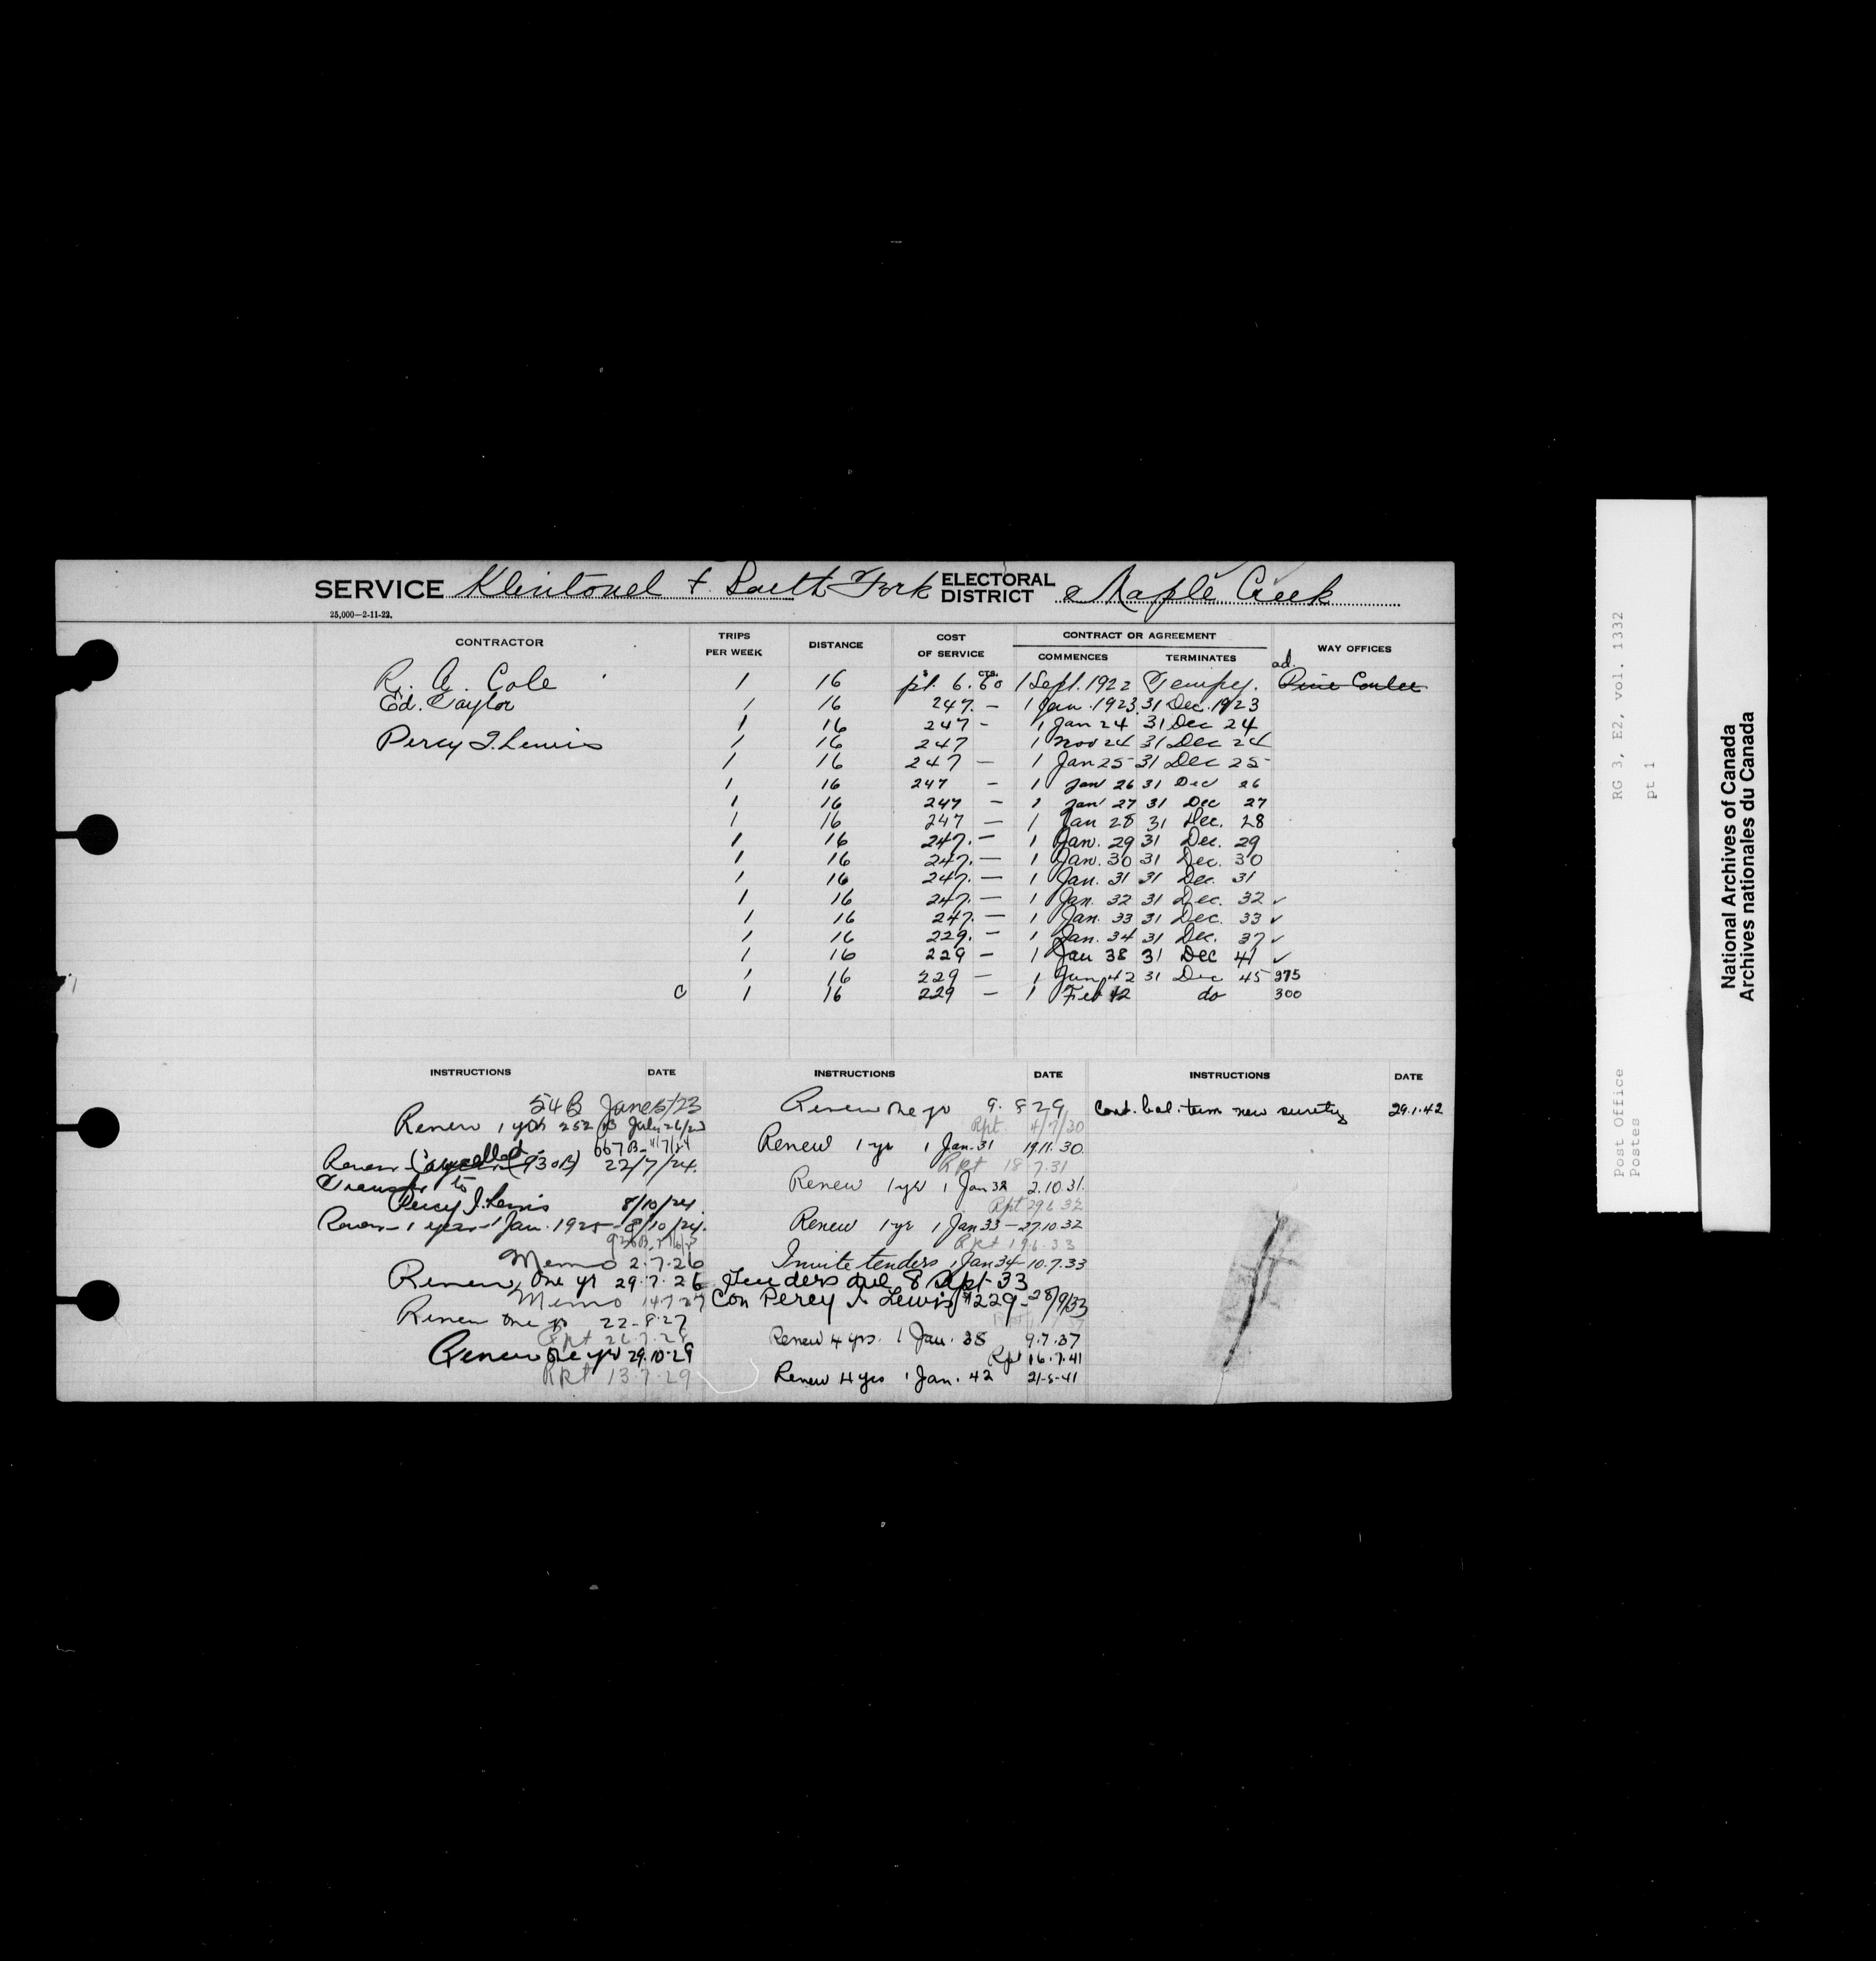 SERVICE Klintonel & South Fork ELECTORAL DISTRICT Maple Creek
25,000—2-11-22.
CONTRACTOR TRIPS PER WEEK DISTANCE COST OF SERVICE CONTRACT OR AGREEMENT WAY OFFICES
COMMENCES TERMINATES
$ CTS. ad.
R. A. Cole 1 16 pt. 6.60 1 Sept. 1922 Tempy. Pine Coulee
Ed. Taylor 1 16 247. — 1 Jan. 1923 31 Dec. 1923
1 16 247 — 1 Jan 24 31 Dec 24
Percy I. Lewis 1 16 247 1 Nov 24 31 Dec 24
1 16 247 — 1 Jan 25 31 Dec 25
1 16 247 — 1 Jan 26 31 Dec 26
1 16 247 — 1 Jan 27 31 Dec 27
1 16 247 — 1 Jan 28 31 Dec. 28
1 16 247. — 1 Jan. 29 31 Dec. 29
1 16 247. — 1 Jan. 30 31 Dec. 30
1 16 247. — 1 Jan. 31 31 Dec. 31
1 16 247. — 1 Jan. 32 31 Dec. 32 ✓
1 16 247. — 1 Jan. 33 31 Dec. 33 ✓
1 16 229. — 1 Jan. 34 31 Dec. 37 ✓
1 16 229 — 1 Jan 38 31 Dec 41 ✓
1 16 229 — 1 Jan 42 31 Dec 45 375
C 1 16 229 — 1 Feb 42 do 300
INSTRUCTIONS DATE
54B June 5/23
Renew 1 yr 252 B July 26/23
667B 4/7/24
Renew Cancelled (930B) 22/7/24.
Transfer to
Percy I. Lewis 8/10/24.
Renew 1 year 1 Jan. 1925 8/10/24.
Memo 2.7.26
Renew One yr 29.7.26
Memo 14.7.27
Renew One yr 22-8-27
Rpt 26.7.28
Renew One yr 29.10.28
Rpt 13.7.29
INSTRUCTIONS DATE
Renew One yr 9.8.29
Rpt 4/7/30
Renew 1 yr 1 Jan. 31 19.11.30.
Rpt 18.7.31
Renew 1 yr 1 Jan 32 2.10.31.
Rpt 29.6.32
Renew 1 yr 1 Jan 33 — 27.10.32
Rpt 19.6.33
Invite tenders 1 Jan 34 - 10.7.33
Tenders due 8 Sept 33
Con Percy I. Lewis $229 - 28/9/33
Renew 4 yrs. 1 Jan. 38 9.7.37
Rpt 16.7.41
Renew 4 yrs 1 Jan. 42 21-8-41
INSTRUCTIONS DATE
Cont. bal. term new surety 29.1.42
RG 3, E2, vol. 1332
pt 1
Post Office
Postes
National Archives of Canada
Archives nationales du Canada